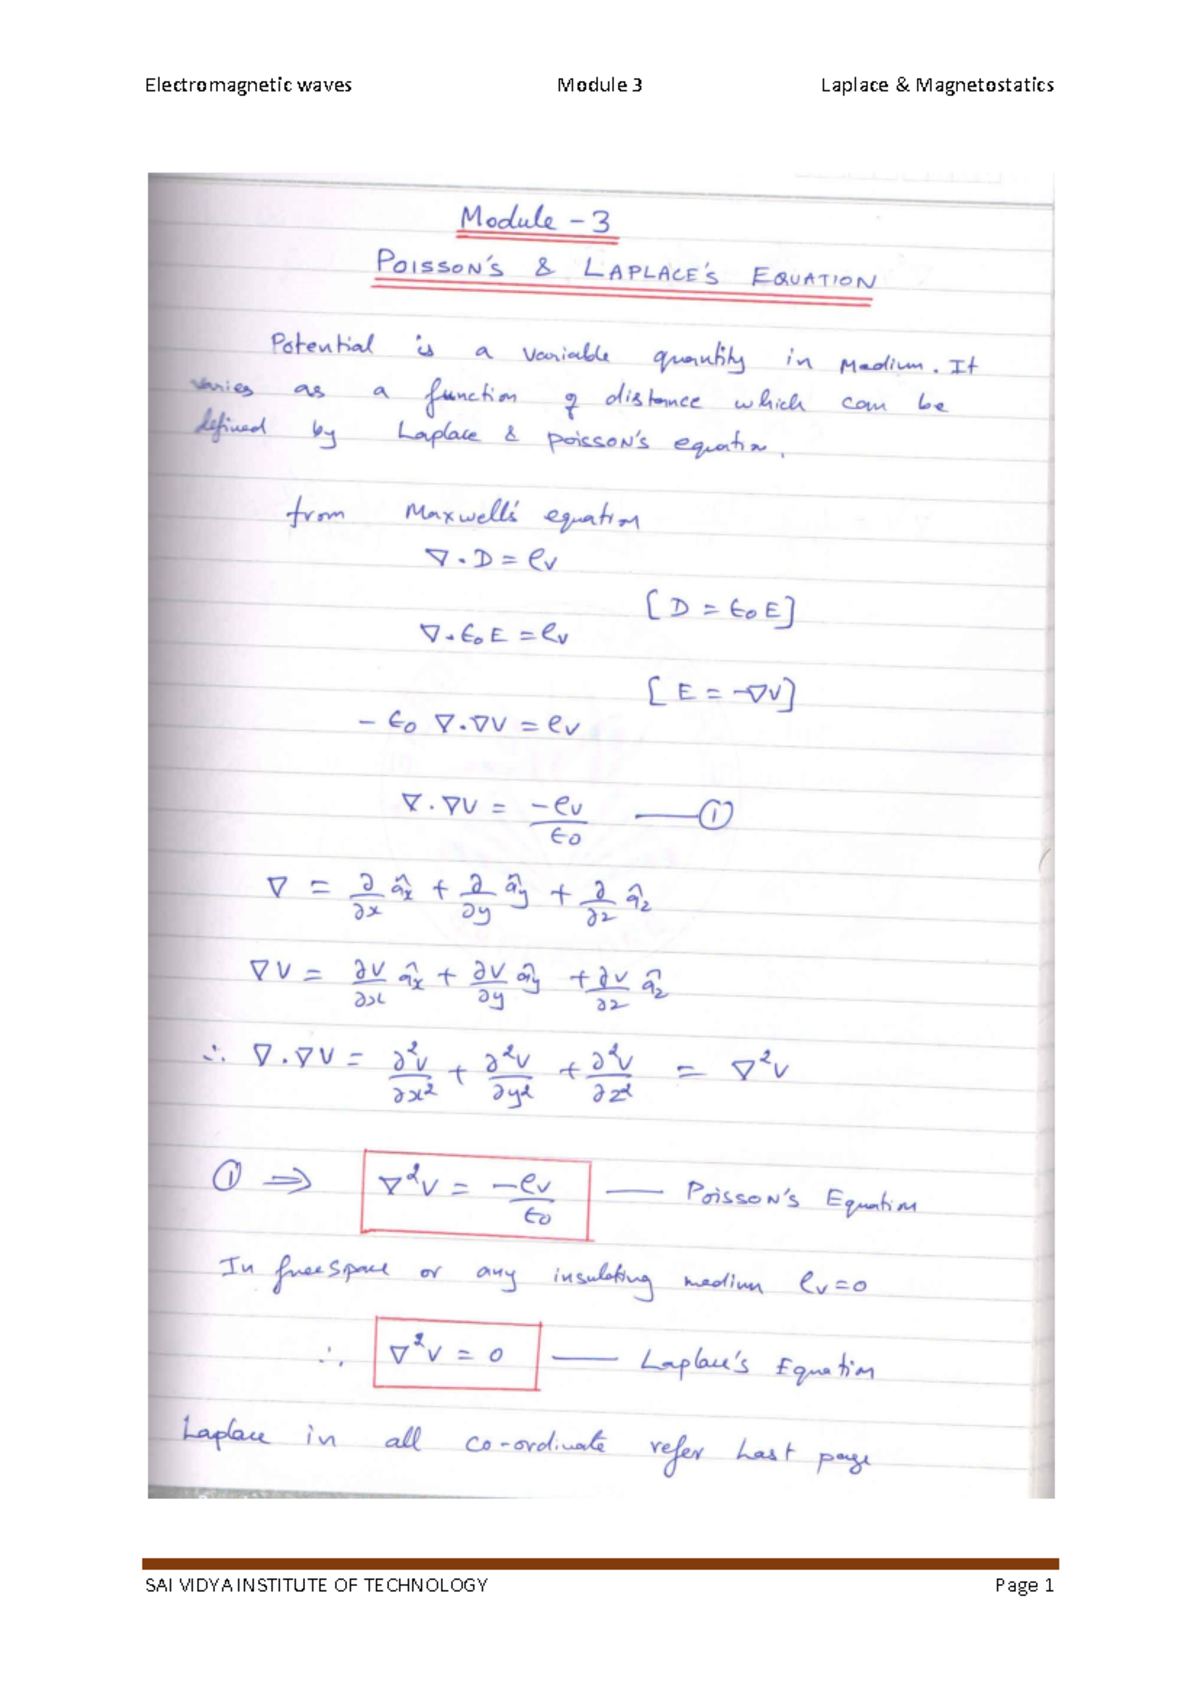 Electromagnetic waves Module 3 Laplace & Magnetostatics
Module - 3
POISSON'S & LAPLACE'S EQUATION
Potential is a variable quantity in Medium. It
varies as a function of distance which can be
defined by Laplace & poisson's equation.
from Maxwell's equation
∇ . D = ρv
[ D = ϵ0 E ]
∇ . ϵ0 E = ρv
[ E = -∇V ]
- ϵ0 ∇ . ∇V = ρv
∇ . ∇V = -ρv / ϵ0 —— ①
∇ = ∂/∂x âx + ∂/∂y ây + ∂/∂z âz
∇V = ∂V/∂x âx + ∂V/∂y ây + ∂V/∂z âz
∴ ∇ . ∇V = ∂²V/∂x² + ∂²V/∂y² + ∂²V/∂z² = ∇²V
① ⇒ ∇²V = -ρv / ϵ0 —— Poisson's Equation
In free space or any insulating medium ρv = 0
∴ ∇²V = 0 —— Laplace's Equation
Laplace in all co-ordinate refer Last page
SAI VIDYA INSTITUTE OF TECHNOLOGY Page 1